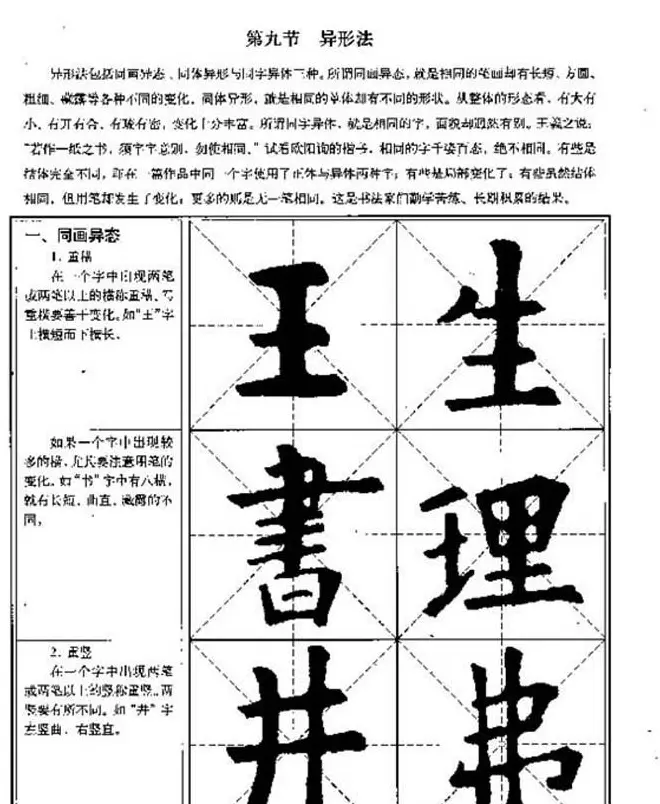 第九节 异形法
异形法包括同画异态、同体异形与同字异体三种。所谓同画异态，就是相同的笔画却有长短、方圆、
粗细、藏露等各种不同的变化，同体异形，就是相同的单体却有不同的形状。从整体的形态看，有大有
小、有开有合、有疏有密，变化十分丰富。所谓同字异体，就是相同的字，面貌却迥然有别。王羲之说：
“若作一纸之书，须字字意别，勿使相同。”试看欧阳询的楷字，相同的字千姿百态，绝不相同。有些是
结体完全不同，即在一篇作品中同一个字使用了正体与异体两种字；有些是局部变化了；有些虽然结体
相同，但用笔却发生了变化；更多的则是无一笔相同。这是书法家们勤学苦练、长期积累的结果。
一、同画异态
1. 重横
在一个字中出现两笔
或两笔以上的横称重横、写
重横要善于变化。如“王”字
上横短而下横长。
王 生
如果一个字中出现较
多的横，尤其要注意用笔的
变化。如“书”字中有八横，
就有长短、曲直、藏露的不
同。
書 理
2. 重竖
在一个字中出现两笔
或两笔以上的竖称重竖。两
竖要有所不同。如“井”字
左竖曲、右竖直。
井 弗